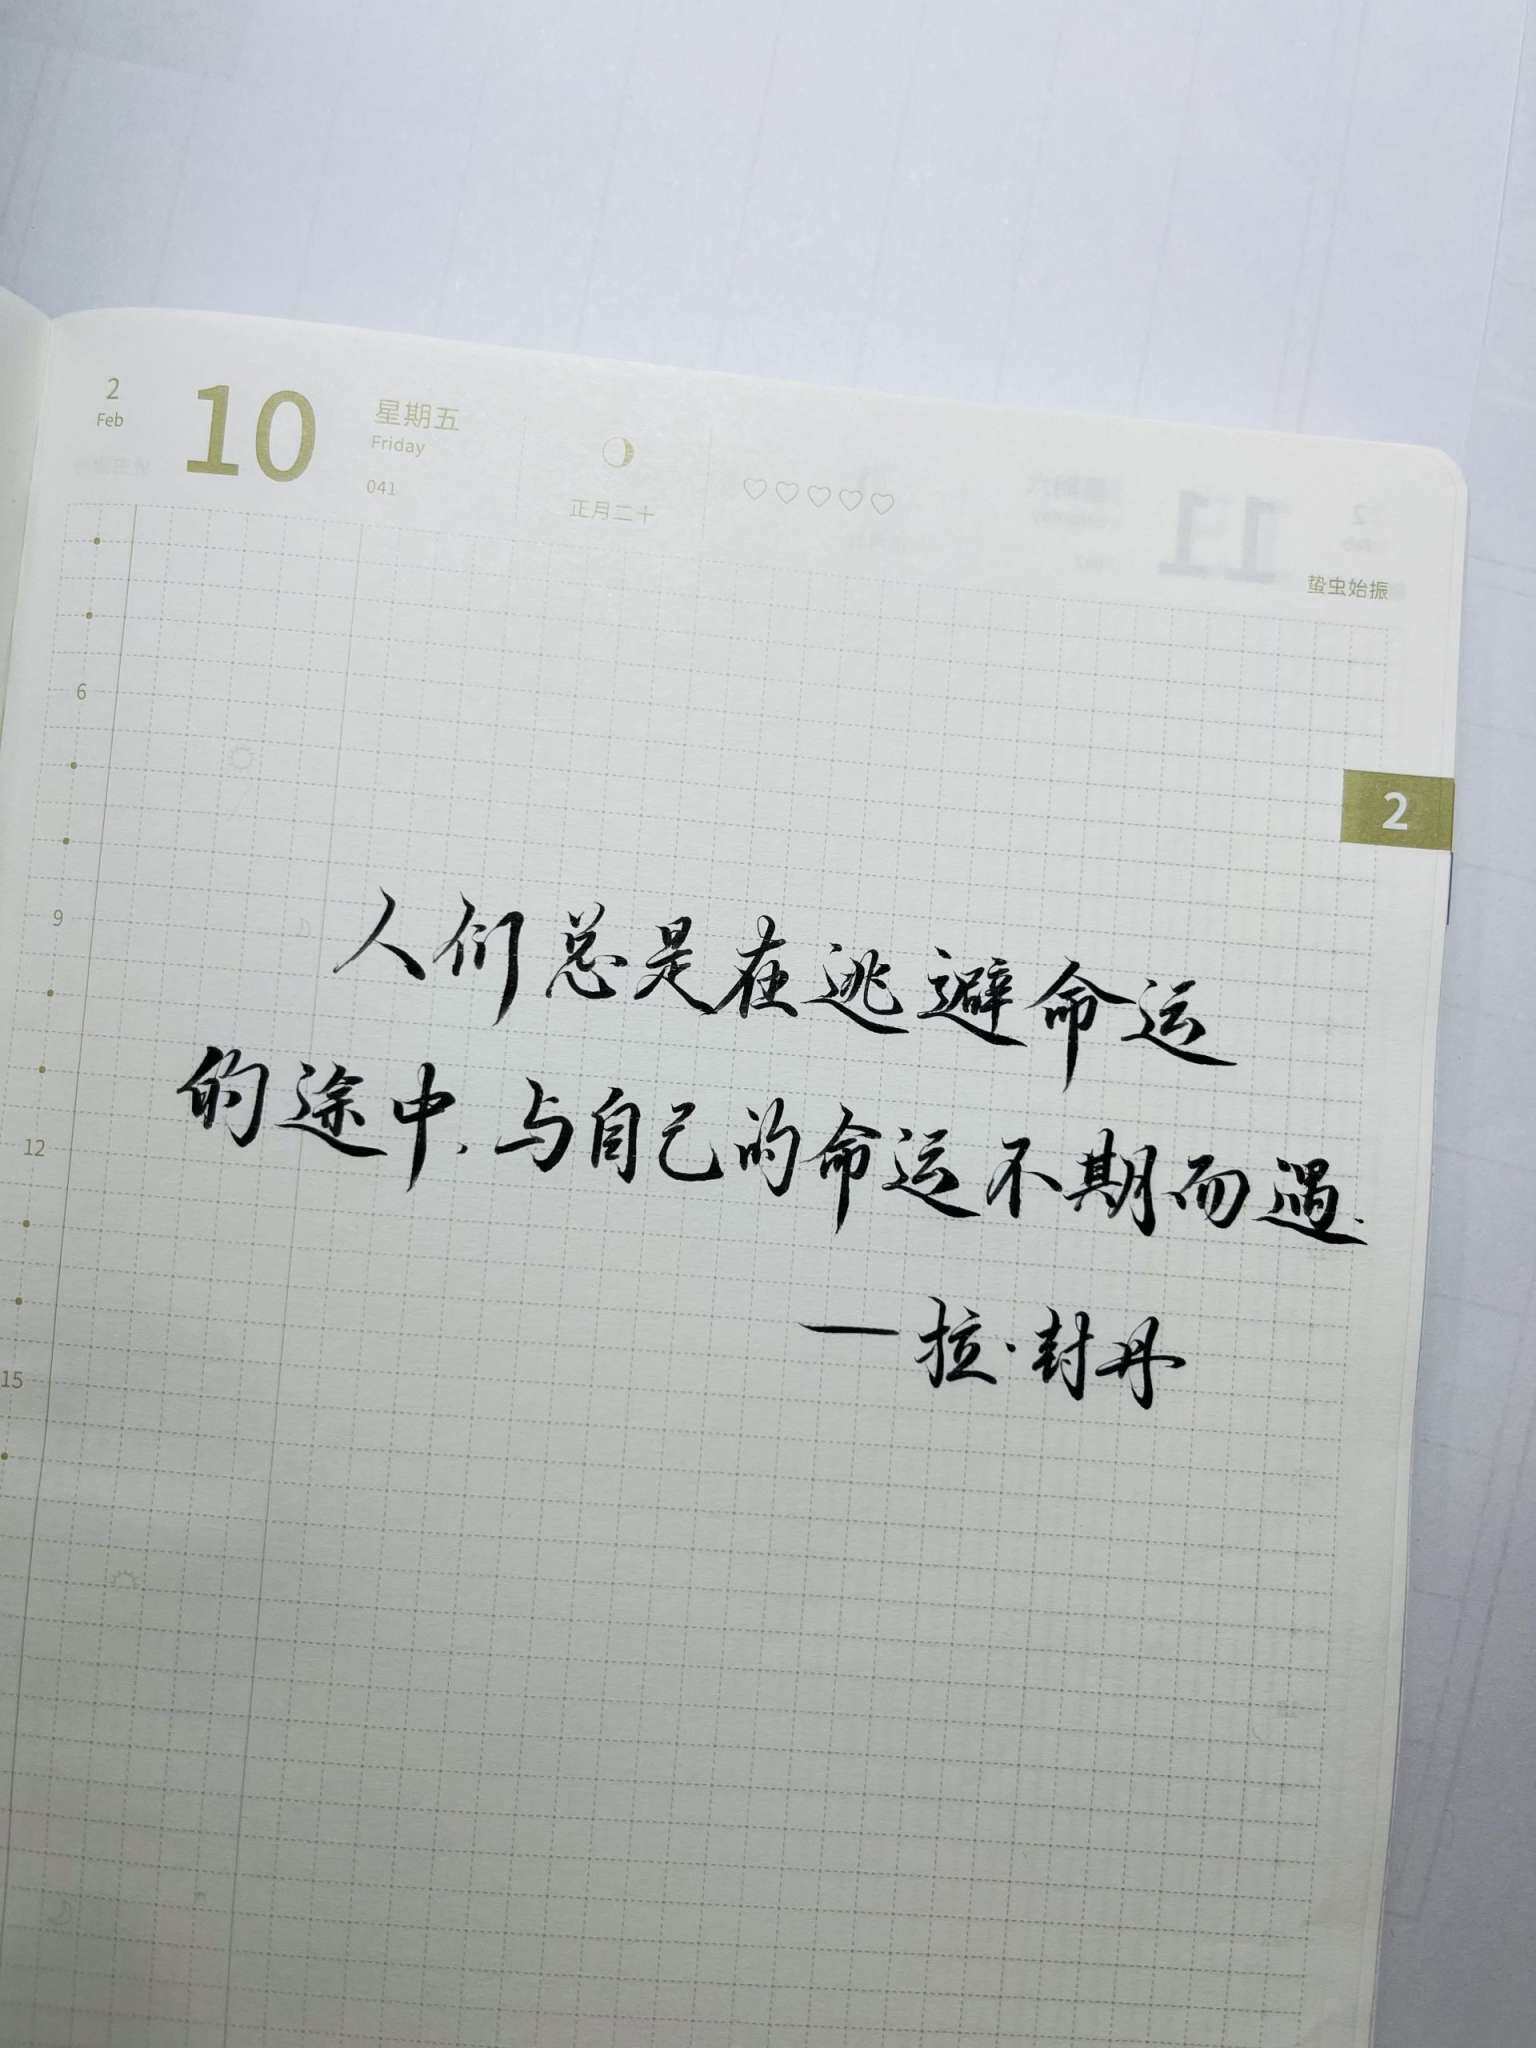 2
Feb
10
星期五
Friday
041
正月二十
蛰虫始振
6
2
9
人们总是在逃避命运
12
的途中，与自己的命运不期而遇.
15
—拉·封丹